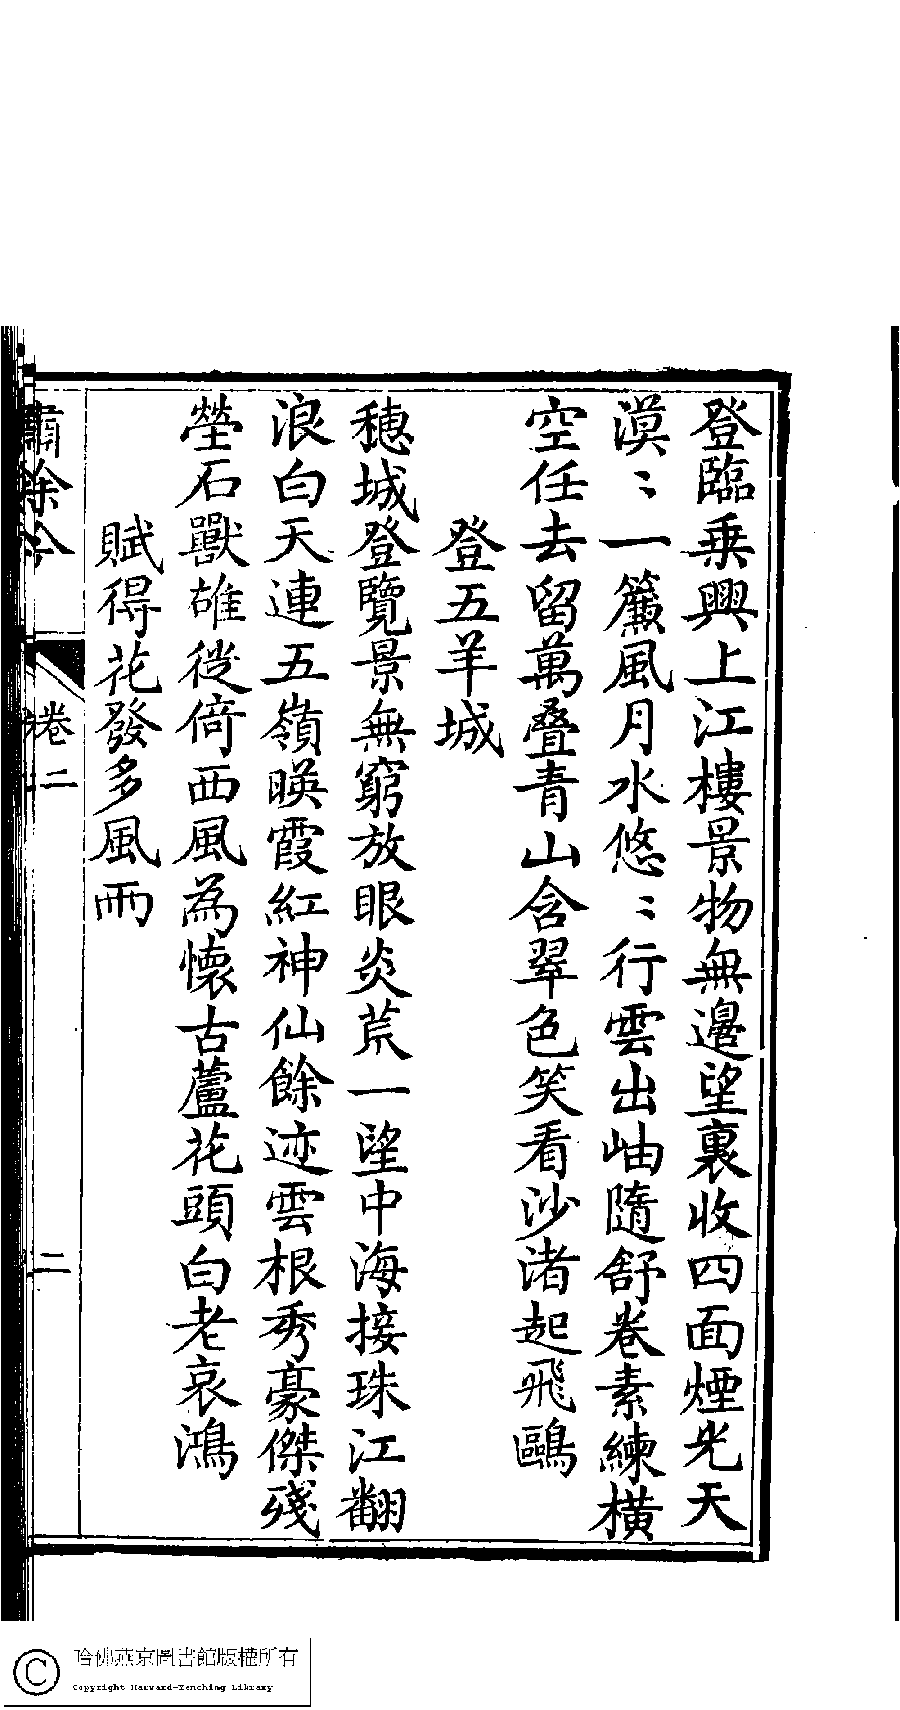 登臨乗興上江樓景物無邊望裏收四面煙光天
漠〻一簾風月水悠〻行雲出岫隨舒卷素練橫
空任去留萬叠青山含翠色笑看沙渚起飛鷗
登五羊城
穗城登覽景無窮放眼炎荒一望中海接珠江翻
浪白天連五嶺暎霞紅神仙餘迹雲根秀豪傑殘
塋石獸雄徙倚西風為懷古蘆花頭白老哀鴻
賦得花發多風雨
餘今
卷二
二
哈佛燕京圖書館版權所有
Copyright Harvard-Yenching Library